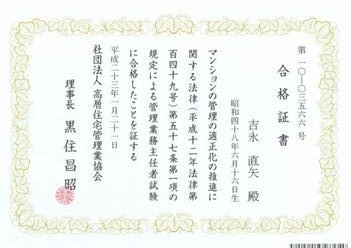 第一〇―〇三五六六号
合格証書
吉永 直矢 殿
昭和四十八年六月十六日生
マンションの管理の適正化の推進に
関する法律（平成十二年法律第
百四十九号）第五十七条第一項の
規定による管理業務主任者試験
に合格したことを証する
平成二十三年一月二十一日
社団法人 高層住宅管理業協会
理事長 黒住昌昭